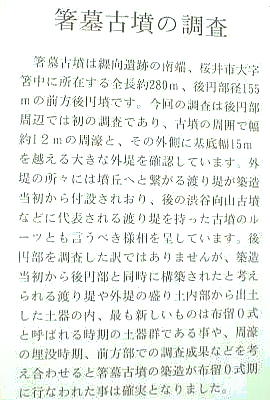 箸墓古墳の調査
箸墓古墳は纒向遺跡の南端、桜井市大字
箸中に所在する全長約280m、後円部径155
mの前方後円墳です。今回の調査は後円部
周辺では初の調査であり、古墳の周囲で幅
約12mの周濠と、その外側に基底幅15m
を越える大きな外堤を確認しています。外
堤の所々には墳丘へと繋がる渡り堤が築造
当初から付設されおり、後の渋谷向山古墳
などに代表される渡り堤を持った古墳のル
ーツとも言うべき様相を呈しています。後
円部を調査した訳ではありませんが、築造
当初から後円部と同時に構築されたと考え
られる渡り堤や外堤の盛り土内部から出土
した土器の内、最も新しいものは布留0式
と呼ばれる時期の土器群である事や、周濠
の埋没時期、前方部での調査成果などを考
え合わせると箸墓古墳の築造が布留0式期
に行なわれた事は確実となりました。